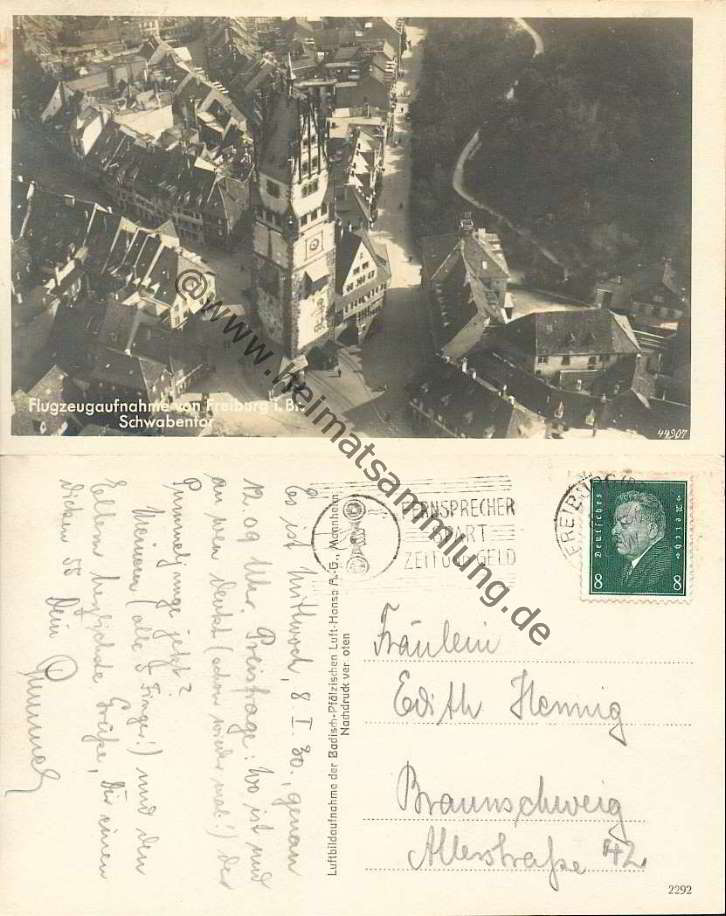 Flugzeugaufnahme von Freiburg i. Br.
Schwabentor
44907
@www.heimatsammlung.de
Es ist Mittwoch, 8. I. 30., genau
12.09 Uhr. Preisfrage: Wo ist und
an wen denkt (schon wieder mal!) der
Pummeljunge jetzt?
Meinen (alle 5 Finger!) und den
Eltern herzlichste Grüße, Dir einen
dicken Dein
Pummel
Luftbildaufnahme der Badisch-Pfälzischen Luft-Hansa A.G., Mannheim
Nachdruck verboten
FERNSPRECHER
SPART
ZEIT UND GELD
FREIBURG
Deutsches Reich
8 8
Fräulein
Edith Hennig
Braunschweig
Allerstraße 42
2292